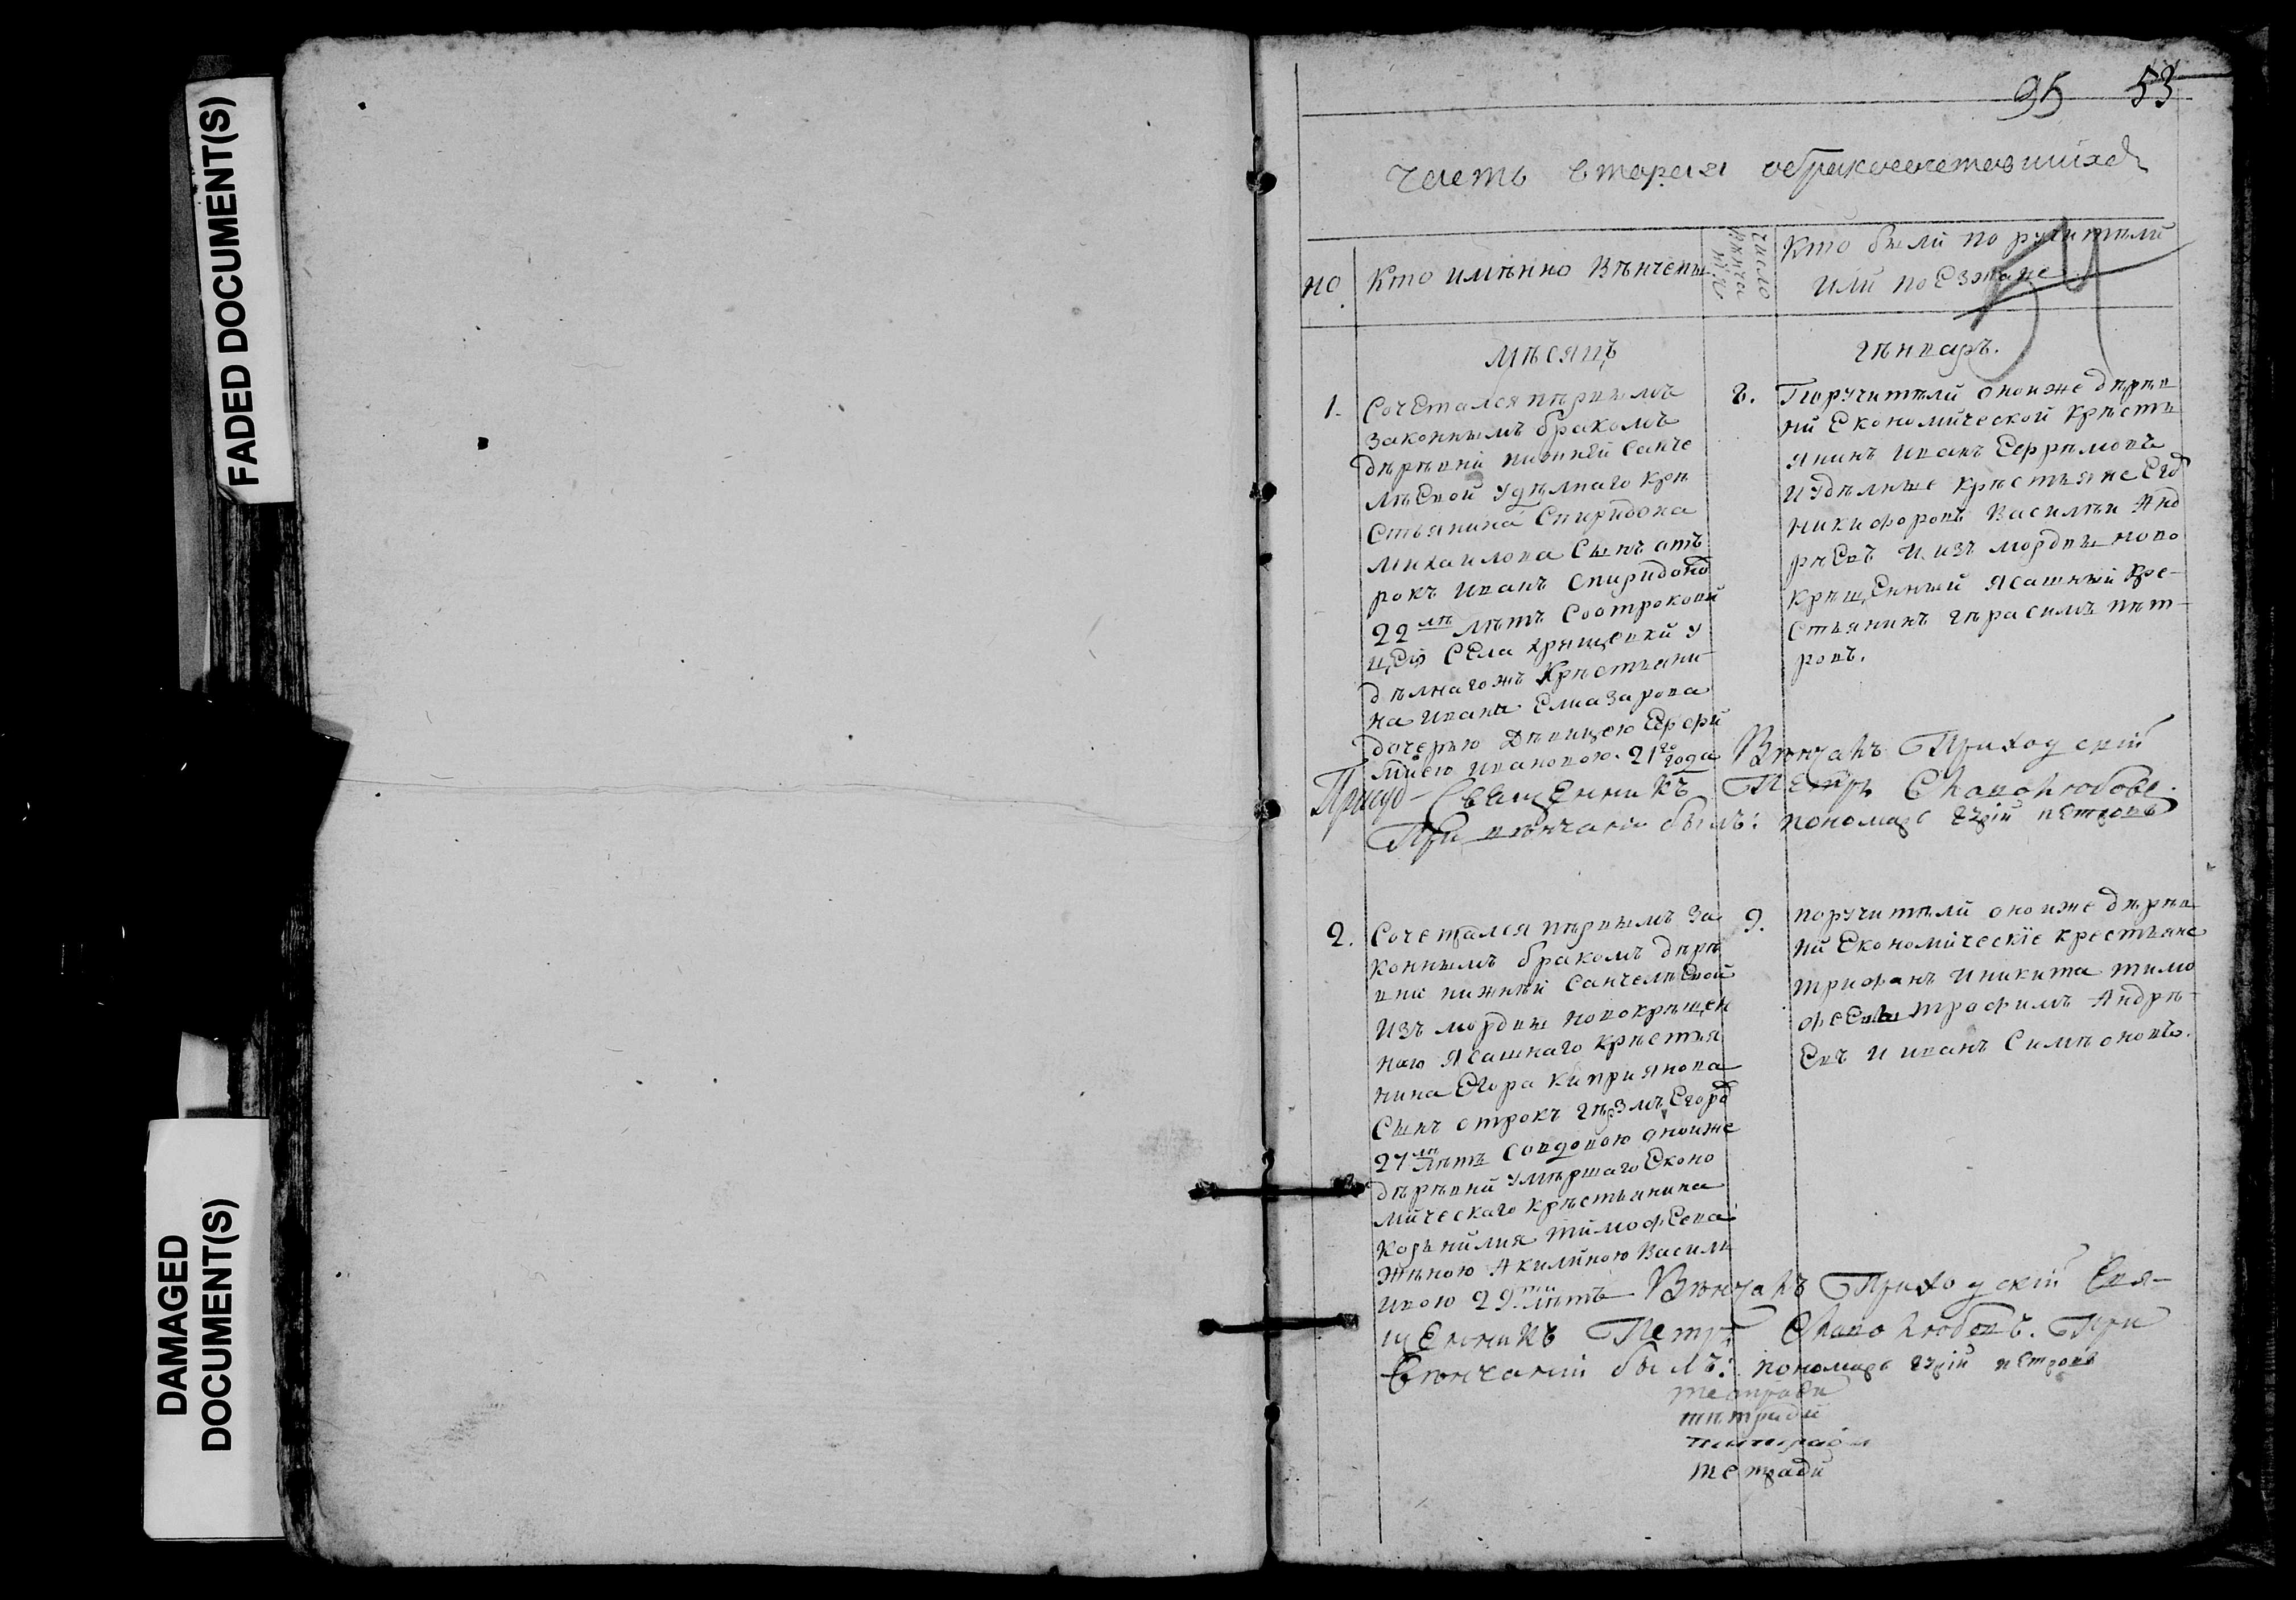 FADED DOCUMENT(S)
DAMAGED
DOCUMENT(S)
95 53
Часть вторая обракосочетавшихся
НО. Кто имѣнно вѣнчены
число венчанiй
Кто были по ручители
или поезжане
54
мѣсяцъ гѣнварь.
1. Сочетался пѣрвымъ
законнымъ бракомъ
дѣрѣвни нижнѣй Санче
лѣевой удѣлнаго крѣ
стьянина Спиридона
Михаилова сынъ отъ
рокъ Иванъ Спиридоно
22 лѣ лѣтъ соотрокови
цею села хрящовки у
дѣлнагожъ крѣстьяни
на Ивана Елиазарова
дочерью дѣвицею
Ивановою. 21го года
8. Поручители оноиже дѣрѣв
ни Економической крѣсть
янинъ Иванъ Ефрѣмовъ
и удѣлные крѣстьяне Его
Никифоровъ Василѣи Анд
рѣевъ и изъ мордвы ново
крѣщенный ясашный кре-
стьянинъ гѣрасимъ пѣт-
ровъ.
Венчалъ Приходскiй
Священникъ Петръ
При венчанiи былъ: пономарь Гурiй пЕтровъ
2. Сочетался пѣрвымъ за
коннымъ бракомъ дѣрѣ
вни нижнѣй Санчелѣевой
изъ мордвы новокрѣщен
наго ясашнаго крѣстья
нина Егора Киприянова
сынъ отрокъ Егоро
27 лѣ лѣтъ совдовою оноиже
дѣрѣвни умѣршаго Еконо
мическаго крѣстьянина
Корьнилия Тимофеева
жѣною Акилиною Василь
ивою 29.ти лѣтъ
9. поручители оноиже дѣрѣв
ни Економическiе крестьяне
трифанъ иникита тимо
феевы трофимъ Андрѣ-
евъ и иванъ Симѣоновъ.
Вѣнчалъ Приходскiй Свя-
щЕнникъ Петръ При
Вѣнчанiи былъ: пономарь Гурiй пЕтровъ
тетради
тѣтради
тетради